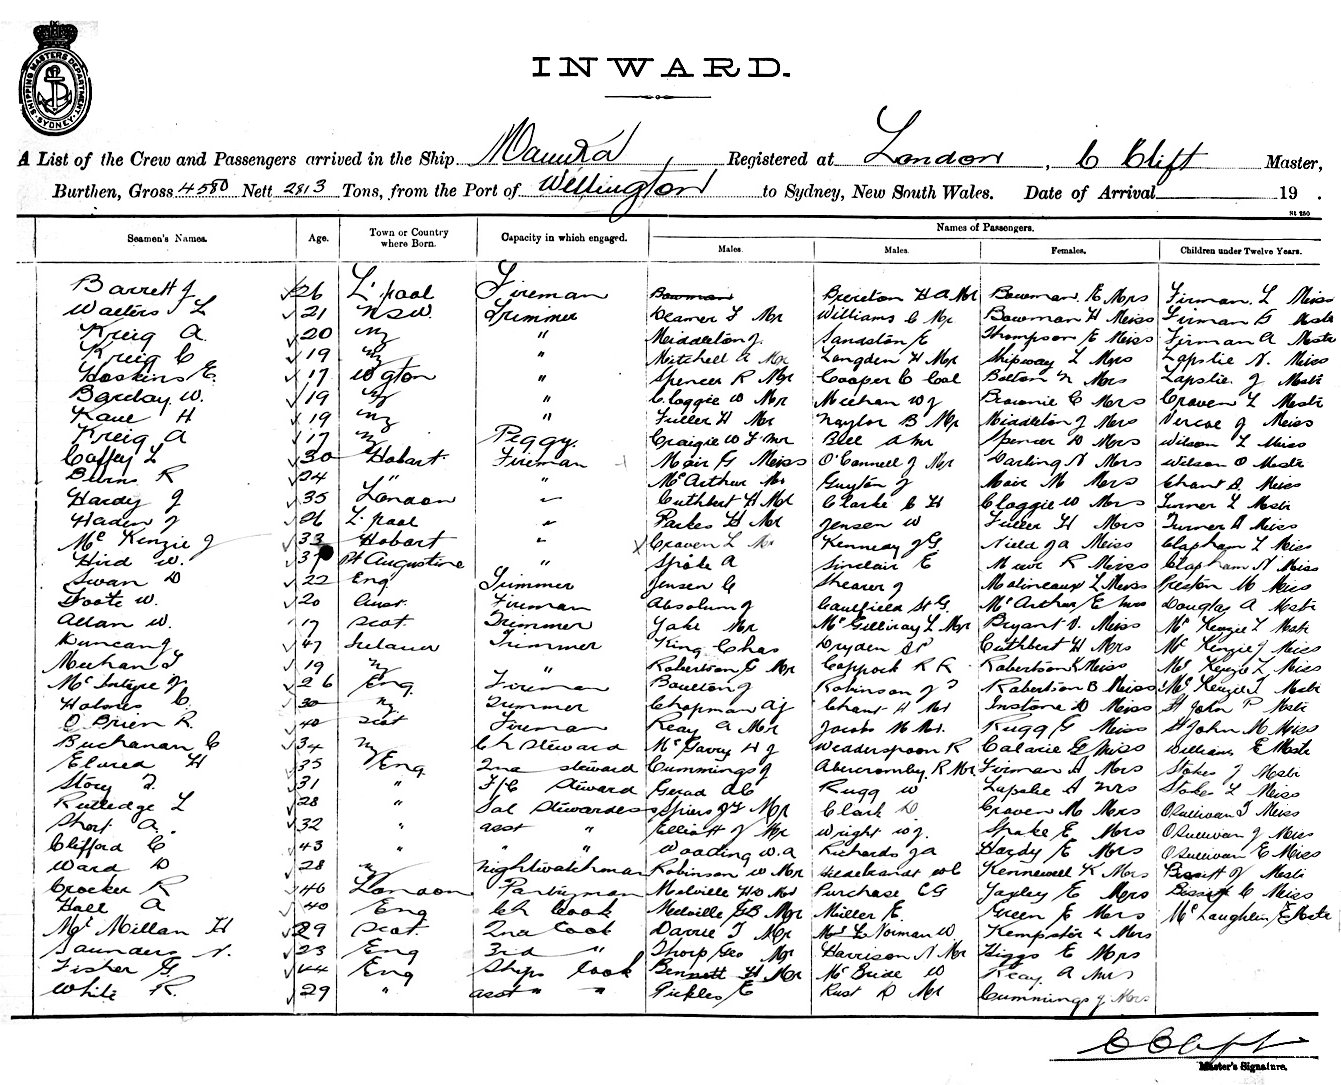 SHIPPING MASTERS DEPARTMENT SYDNEY
INWARD.
A List of the Crew and Passengers arrived in the Ship Manuka Registered at London, C Clift Master,
Burthen, Gross 4580 Nett 2813 Tons, from the Port of Wellington to Sydney, New South Wales. Date of Arrival 19 .
St 250
Seamen's Names. Age. Town or Country where Born. Capacity in which engaged. Names of Passengers.
Males. Males. Females. Children under Twelve Years.
Barrett J 26 L'pool Fireman Bowman Brereton H A Mr Bowman E Mrs Firman L Miss
Walters L 21 NSW. Trimmer Williams C Mr Bowman H Miss Firman G Mstr
Kreig A 20 NZ " Middleton J. Sandston E Thompson E Miss Firman A Mstr
Kreig C 19 NZ " Mitchell A Mr Langden H Mr Shipway L Mrs Lapslie N. Miss
Hoskins E. 17 Wgton " Spencer R Mr Cooper C Col Bolton Mrs Lapslie J Mstr
Barclay W. 19 NZ " Cloggie W Mr Meehan W J Brownie C Mrs Craven L Mstr
Kane H 19 NZ " Fuller H Mr Naylor B Mr Middleton J Mrs Vercoe J Miss
Kreig A 17 NZ Peggy. Craigie W F Mr Bell A Mr Spencer D Mrs Wilson L Miss
Caffey L 30 Hobart Fireman Mair G Miss O'Connell J Mr Darling N Mrs Wilson O Mstr
Burns R 24 " " McArthur Mr Guyton J Mair M Mrs Chant D. Miss
Hardy J 35 London " Cuthbert H Mr Clarke C H Cloggie W Mrs Turner L Mstr
Haden J 26 L'pool " Parkes H Mr Jensen W Fuller H Mrs Turner A Miss
McKenzie J 33 Hobart " Craven L Mr Kenneay J G Nield J A Miss Clapham L Miss
Hird W. 37 Pt Augustine " Spake A Sinclair E Muir R Miss Clapham N Miss
Swan D 22 Eng Trimmer Jensen C Shearer J Molineaux L Miss Preston M Miss
Foote W. 20 Aust. Fireman Absolum J Caulfield St G. McArthur E Mrs Douglas A Mstr
Allan W. 17 Scot. Trimmer Yake Mr McGilliray L Mr Bryant V. Miss McKenzie L Mstr
Duncan J 47 Ireland Trimmer King Chas Dryden Cuthbert H Mrs McKenzie J Miss
Meehan T 19 NZ " Robertson G Mr Coppock R R Robertson Miss McKenzie L Miss
McIntyre J 26 Eng Fireman Boulton J Robinson J Robertson B Miss McKenzie T Mstr
Holmes C. 30 NZ Trimmer Chapman A J Chant H Mr Instone D Miss St John P Mstr
O'Brien R. 40 Scot Fireman Keay A Mr Jacobs M Mr. Rugg G Miss St John M Miss
Buchanan C 34 NZ Ch Steward McGarry H J Weaderspoon R Calarie G Miss Williams E Mstr
Elured H 35 Eng 2nd Steward Cummings J Abercromby R Mr Firman A Mrs Stokes J Mstr
Story F. 31 " F/C Steward Gerad A C Rugg W Lapslie A Mrs Stokes L Miss
Rutledge L 28 " Sal Stewardess Spiers J F Mr Clark D. Craven M Mrs O'Sullivan T Miss
Short A. 32 " Asst " Elliott J Mr Wright W J. Spake E Mrs O'Sullivan J Miss
Clifford C 43 " " " Wooding W. A Richards J A Hardy E Mrs O'Sullivan E Miss
Ward D 28 NZ Nightwatchman Robinson W Mr Kennewell K Mrs J Mstr
Crocker R 46 London Pantryman Melville Mr Purchase C G Yaxley E Mrs C Miss
Hall A 40 Eng Ch Cook Melville G B Mr Müller E. Green E Mrs McLaughlin E Mstr
McMillan H 29 Scot. 2nd Cook Darrie T Mr Norman W Kempster L Mrs
Saunders N. 23 Eng 3rd " Thorp Geo Mr Harrison N Mr Higgs E Mrs
Fisher G 44 Eng Ships Cook Bennett H Mr McBride W Keay A Mrs
White R. 29 " Asst " " Pickles E Rust D Mr Cummings J Mrs
C Clift
Master's Signature.